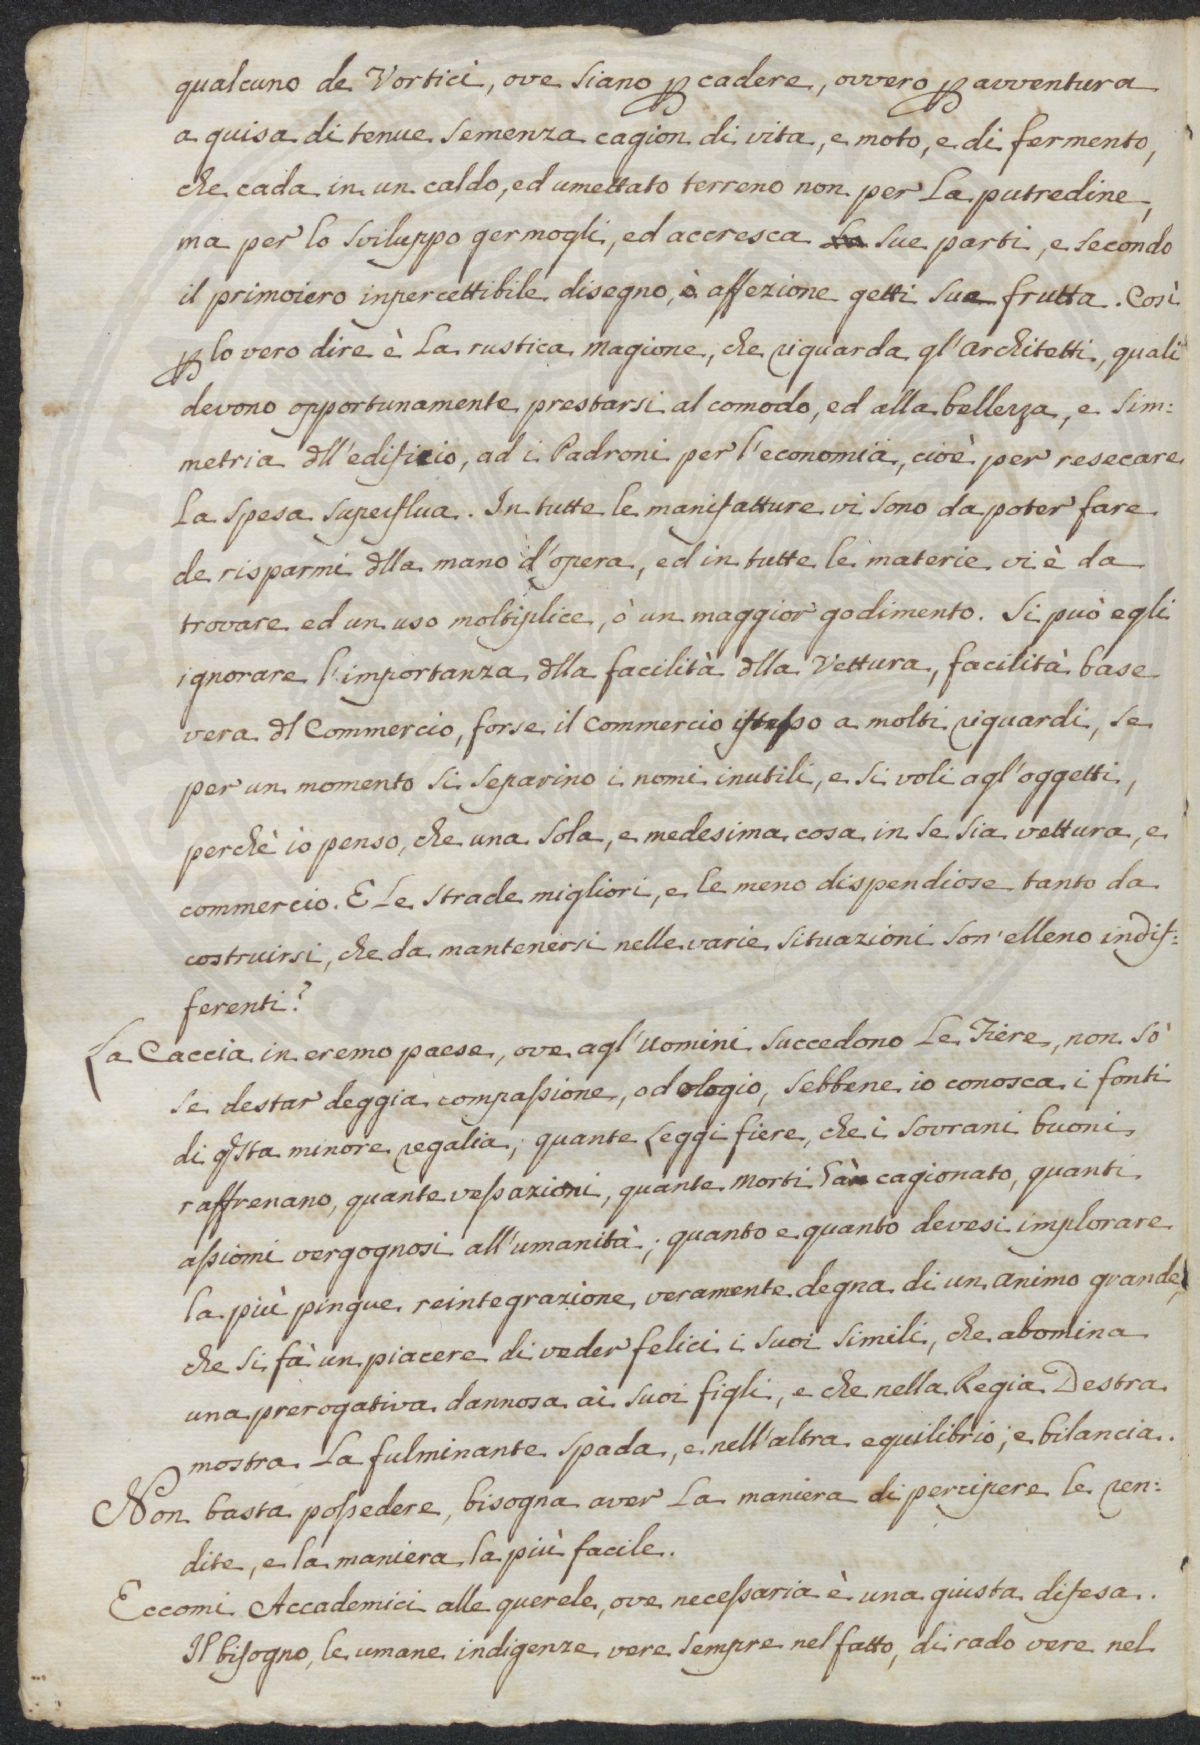 qualcuno de Vortici, ove siano ꝑ cadere, ovvero ꝑ avventura
a guisa di tenue semenza cagion di vita, e moto, e di fermento,
che cada in un caldo, ed umettato terreno non per la putredine,
ma per lo sviluppo germogli, ed accresca sue parti, e secondo
il primoiero inpercettibile disegno, ò affezione getti sue frutta. Così
ꝑ lo vero dire è la rustica magione, che riguarda gl'Architetti, quali
devono opportunamente prestarsi al comodo, ed alla bellezza, e sim:
metria dll'edificio, ad i Padroni per l'economia, cioè per resecare
la spesa superflua. In tutte le manifatture vi sono da poter fare
de risparmi dlla mano d'opera, ed in tutte le materie vi è da
trovare ed un uso moltiplice, ò un maggior godimento. Si può egli
ignorare l'importanza dlla facilità dlla Vettura, facilità base
vera dl Commercio, forse il Commercio istesso a molti riguardi, se
per un momento si separino i nomi inutili, e si voli agl'oggetti,
perchè io penso, che una sola, e medesima cosa in se sia vettura, e
commercio. E le strade migliori, e le meno dispendiose tanto da
costruirsi, che da mantenersi nelle varie situazioni son'elleno indif:
ferenti?
La Caccia in eremo paese, ove agl'Uomini succedono le Fiere, non sò
se destar deggia compassione, od elogio, sebbene io conosca i fonti
di qsta minore regalia; quante Leggi fiere, che i Sovrani buoni
raffrenano, quante vessazioni, quante Morti àn cagionato, quanti
assiomi vergognosi all'umanità; quanto e quanto devesi implorare
la più pingue reintegrazione veramente degna di un animo grande,
che si fà un piacere di veder felici i suoi simili, che abomina
una prerogativa dannosa ai suoi figli, e che nella Regia Destra
mostra la fulminante spada, e nell'altra equilibrio, e bilancia.
Non basta possedere, bisogna aver la maniera di percipere le ren:
dite, e la maniera la più facile.
Eccomi Accademici alle querele, ove necessaria è una giusta difesa.
Il bisogno, le umane indigenze vere sempre nel fatto, di rado vere nel